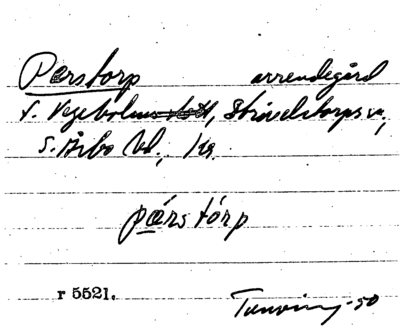 Perstorp arrendegård
t. Vegeholm slott, Strövelstorps sn,
S. Åsbo hd, Kr.
pärstórp
r 5521.
-50